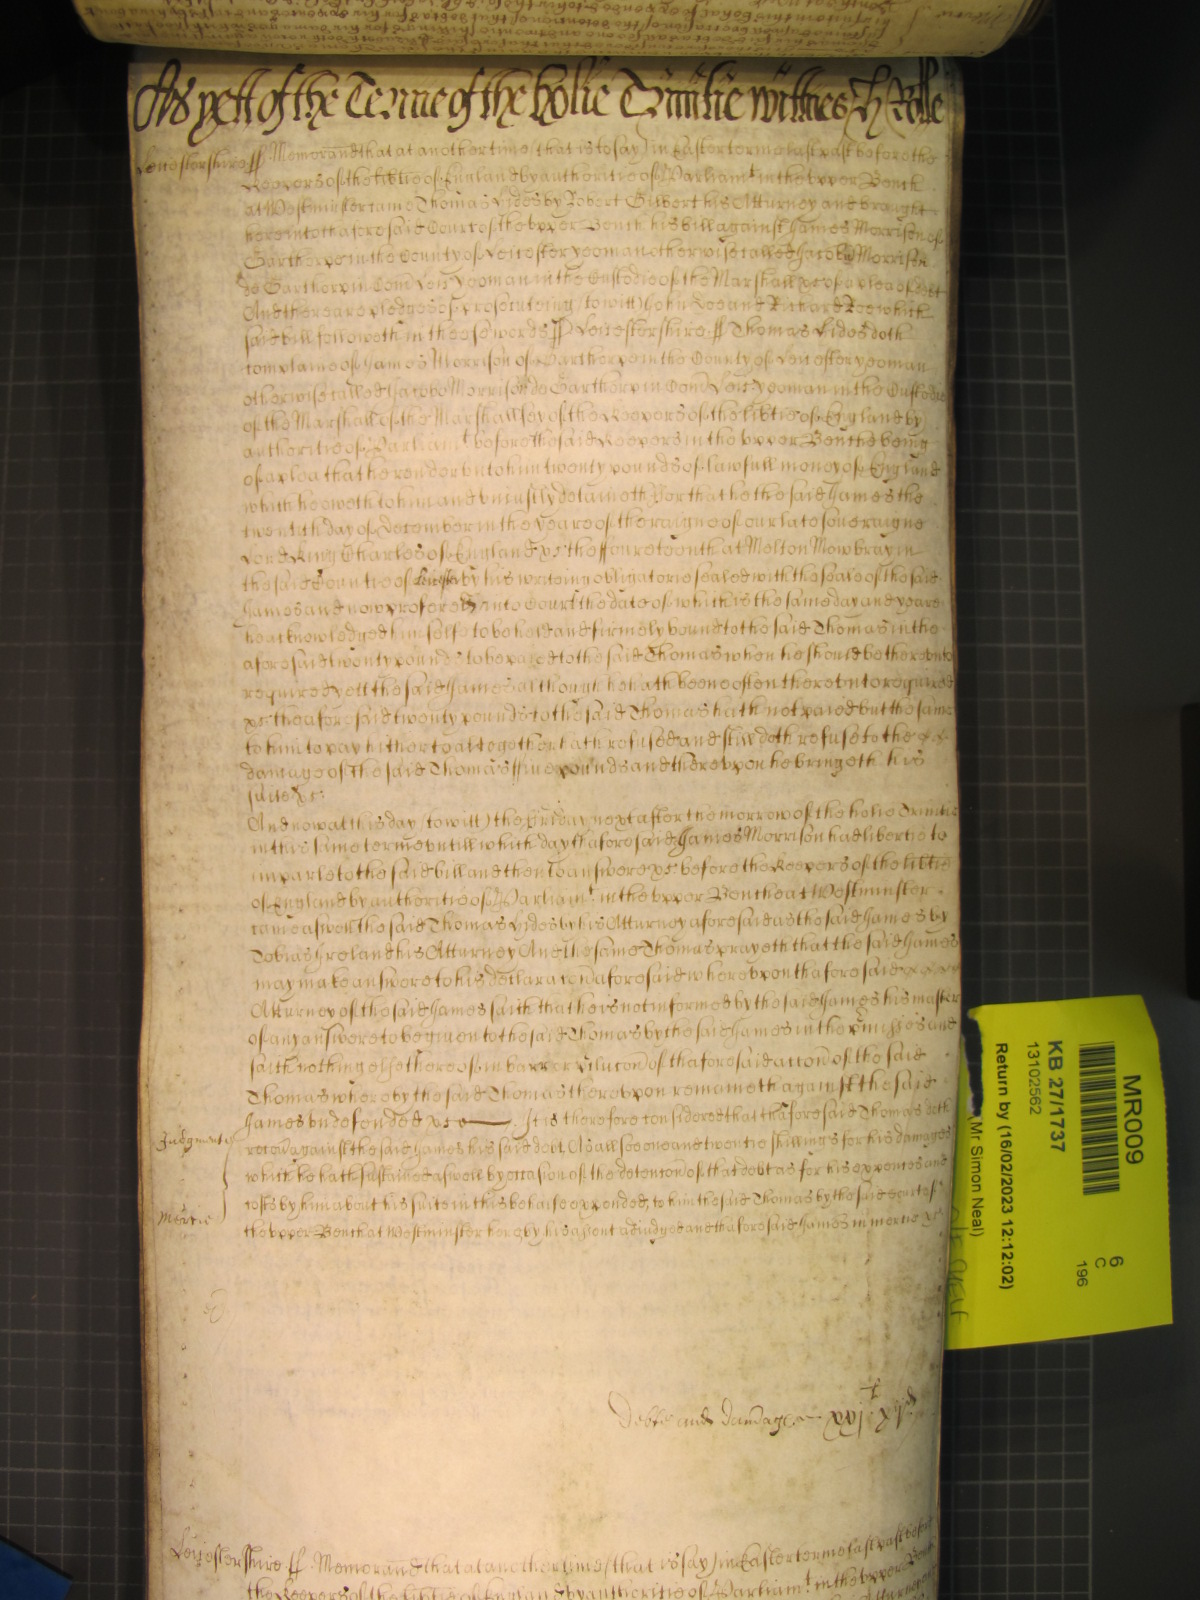 As yett of the Terme of the holie Trinitie wittnes H Rolle
Leicestershire ss Memorand that at another time (that is to say) in Easter terme last past before the
Keepers of the libtie of England by authoritie of Parliamt in the upper Bench
at Westminster came Thomas Eides by Robert Gilbert his Atturney and brought
here into the aforesaid Court of the upper Bench his bill against James Morrison of
Garthorpe in the County of Leicester yeoman otherwise called Jacobu Morrison
de Garthorp in Com Leic yeoman in the Custodie of the Marshall &c of a plea of debt
And there are pledges of prosecuteing (to witt) John Doe and Richard Roe which
said bill followeth in theese words ss Leicestershire ss Thomas Eides doth
complaine of James Morrison of Garthorpe in the County of Leicester yeoman
otherwise called Jacobo Morrison de Garthorp in Com Leic yeoman in the Custodie
of the Marshall of the Marshallsey of the Keepers of the libtie of England by
authoritie of Parliamt before the said Keepers in the upper Benche being
of a plea that he render unto him twenty pounds of lawfull money of England
which he oweth to him and uniustly detaineth For that he the said James the
twentith day of December in the yeare of the raigne of our late soveraigne
Lord King Charles of England &c the ffoureteenth at Melton Mowbray in
the said countie of Leicester by his writeing obligatorie sealed with the seale of the said
James and now profered into Court the date of which is the same day and yeare
he acknowledged himselfe to be held and firmely bound to the said Thomas in the
aforesaid twenty pounds to be paied to the said Thomas when he should be thereunto
required yett the said James although he hath beene often thereunto required
&c the aforesaid twenty pounds to the said Thomas hath not paied but the same
to him to pay hitherto altogether hath refused and still doth refuse to the
damage of the said Thomas ffive pounds and thereupon he bringeth his
suite &c:
And now at this day (to witt) the Friday next after the morrow of the holie Trinitie
in this same terme untill which day thaforesaid James Morrison had libertie to
imparle to the said bill and then to answere &c before the Keepers of the libtie
of England by authoritie of Parliamt in the upper Benche at Westminster
came aswell the said Thomas Eides by his Atturney aforesaid as the said James by
Tobias Ireland his Atturney And the same Thomas prayeth that the said James
may make answere to his declaracon aforesaid whereupon thaforesaid
Atturney of the said James saith that he is not informed by the said James his master
of any answere to be given to the said Thomas by the said James in the premisses and
saith nothing else thereof in barr or eluccon of thaforesaid accon of the said
Thomas whereby the said Thomas thereupon remaineth against the said
James undefended &c It is therefore considered that thaforesaid Thomas doth
Judgment recovr against the said James his said debt And all soe one and twentie shillings for his damages
which he hath sustained aswell by occasion of the detencon of that debt as for his expences and
costs by him about his suite in this behalfe expended, to him the said Thomas by the said court of
Mercie the upper Bench at Westminster here by his assent adiudged and thaforesaid James in mercie &c
Debts and damages xxj
Leicestershire ss Memorand that at another time (that is to say) in Easter terme last past before
the Keepers of the libtie of England by authoritie of Parliamt in the upper Bench
MR009
KB 27/1737
13102562
Return by (16/02/2023 12:12:02)
(Mr Simon Neal)
6
C
196